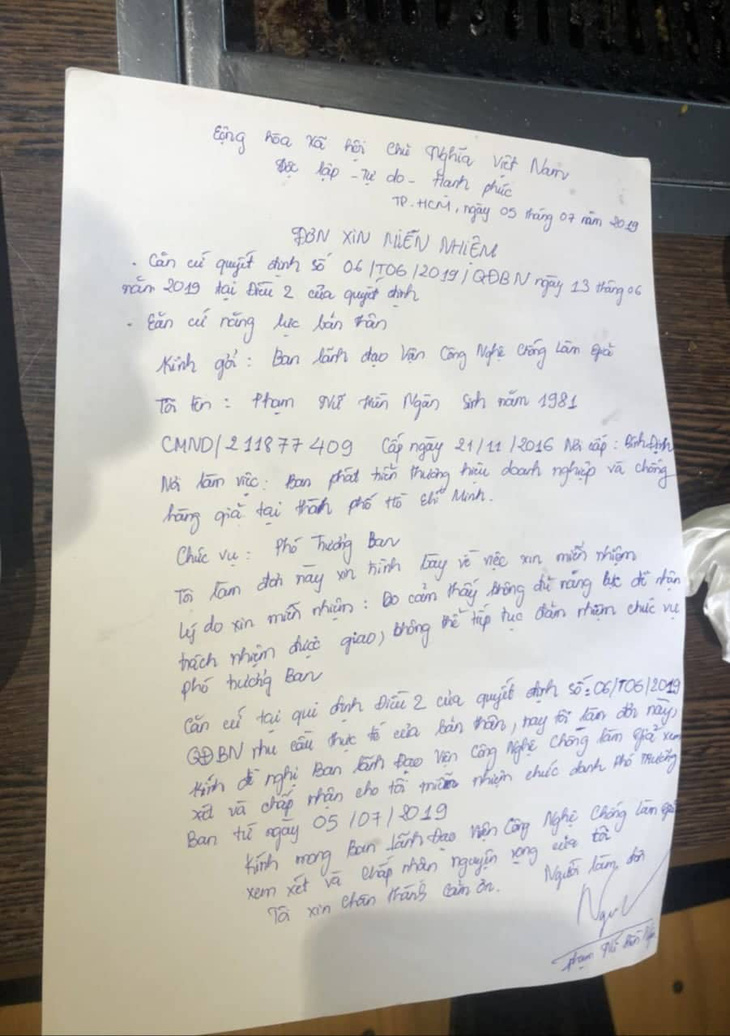 Cộng hòa xã hội chủ nghĩa Việt Nam
Độc lập - Tự do - Hạnh phúc
TP.HCM, ngày 05 tháng 07 năm 2019
ĐƠN XIN MIỄN NHIỆM
- Căn cứ quyết định số 06/T06/2019/QĐBN ngày 13 tháng 06
năm 2019 tại Điều 2 của quyết định
- Căn cứ năng lực bản thân
Kính gởi : Ban lãnh đạo Viện Công Nghệ Chống Làm Giả
Tôi tên : Phạm Nữ Hiền Ngân Sinh năm 1981
CMND/211877409 Cấp ngày 21/11/2016 Nơi cấp : Bình Định
Nơi làm việc : Ban phát triển thương hiệu doanh nghiệp và chống
hàng giả tại thành phố Hồ Chí Minh.
Chức vụ : Phó Trưởng Ban
Tôi làm đơn này xin trình bày về việc xin miễn nhiệm
Lý do xin miễn nhiệm : Do cảm thấy không đủ năng lực để nhận
trách nhiệm được giao, không thể tiếp tục đảm nhiệm chức vụ
phó trưởng Ban
Căn cứ tại qui định Điều 2 của quyết định số : 06/T06/2019
QĐBN nhu cầu thực tế của bản thân, nay tôi làm đơn này,
kính đề nghị Ban lãnh Đạo Viện Công Nghệ Chống làm giả xem
xét và chấp nhận cho tôi miễn nhiệm chức danh Phó Trưởng
Ban từ ngày 05/07/2019
Kính mong Ban lãnh Đạo Viện Công Nghệ Chống làm giả
xem xét và chấp nhận nguyện vọng của tôi
Tôi xin chân thành cảm ơn. Người làm đơn
Phạm Nữ Hiền